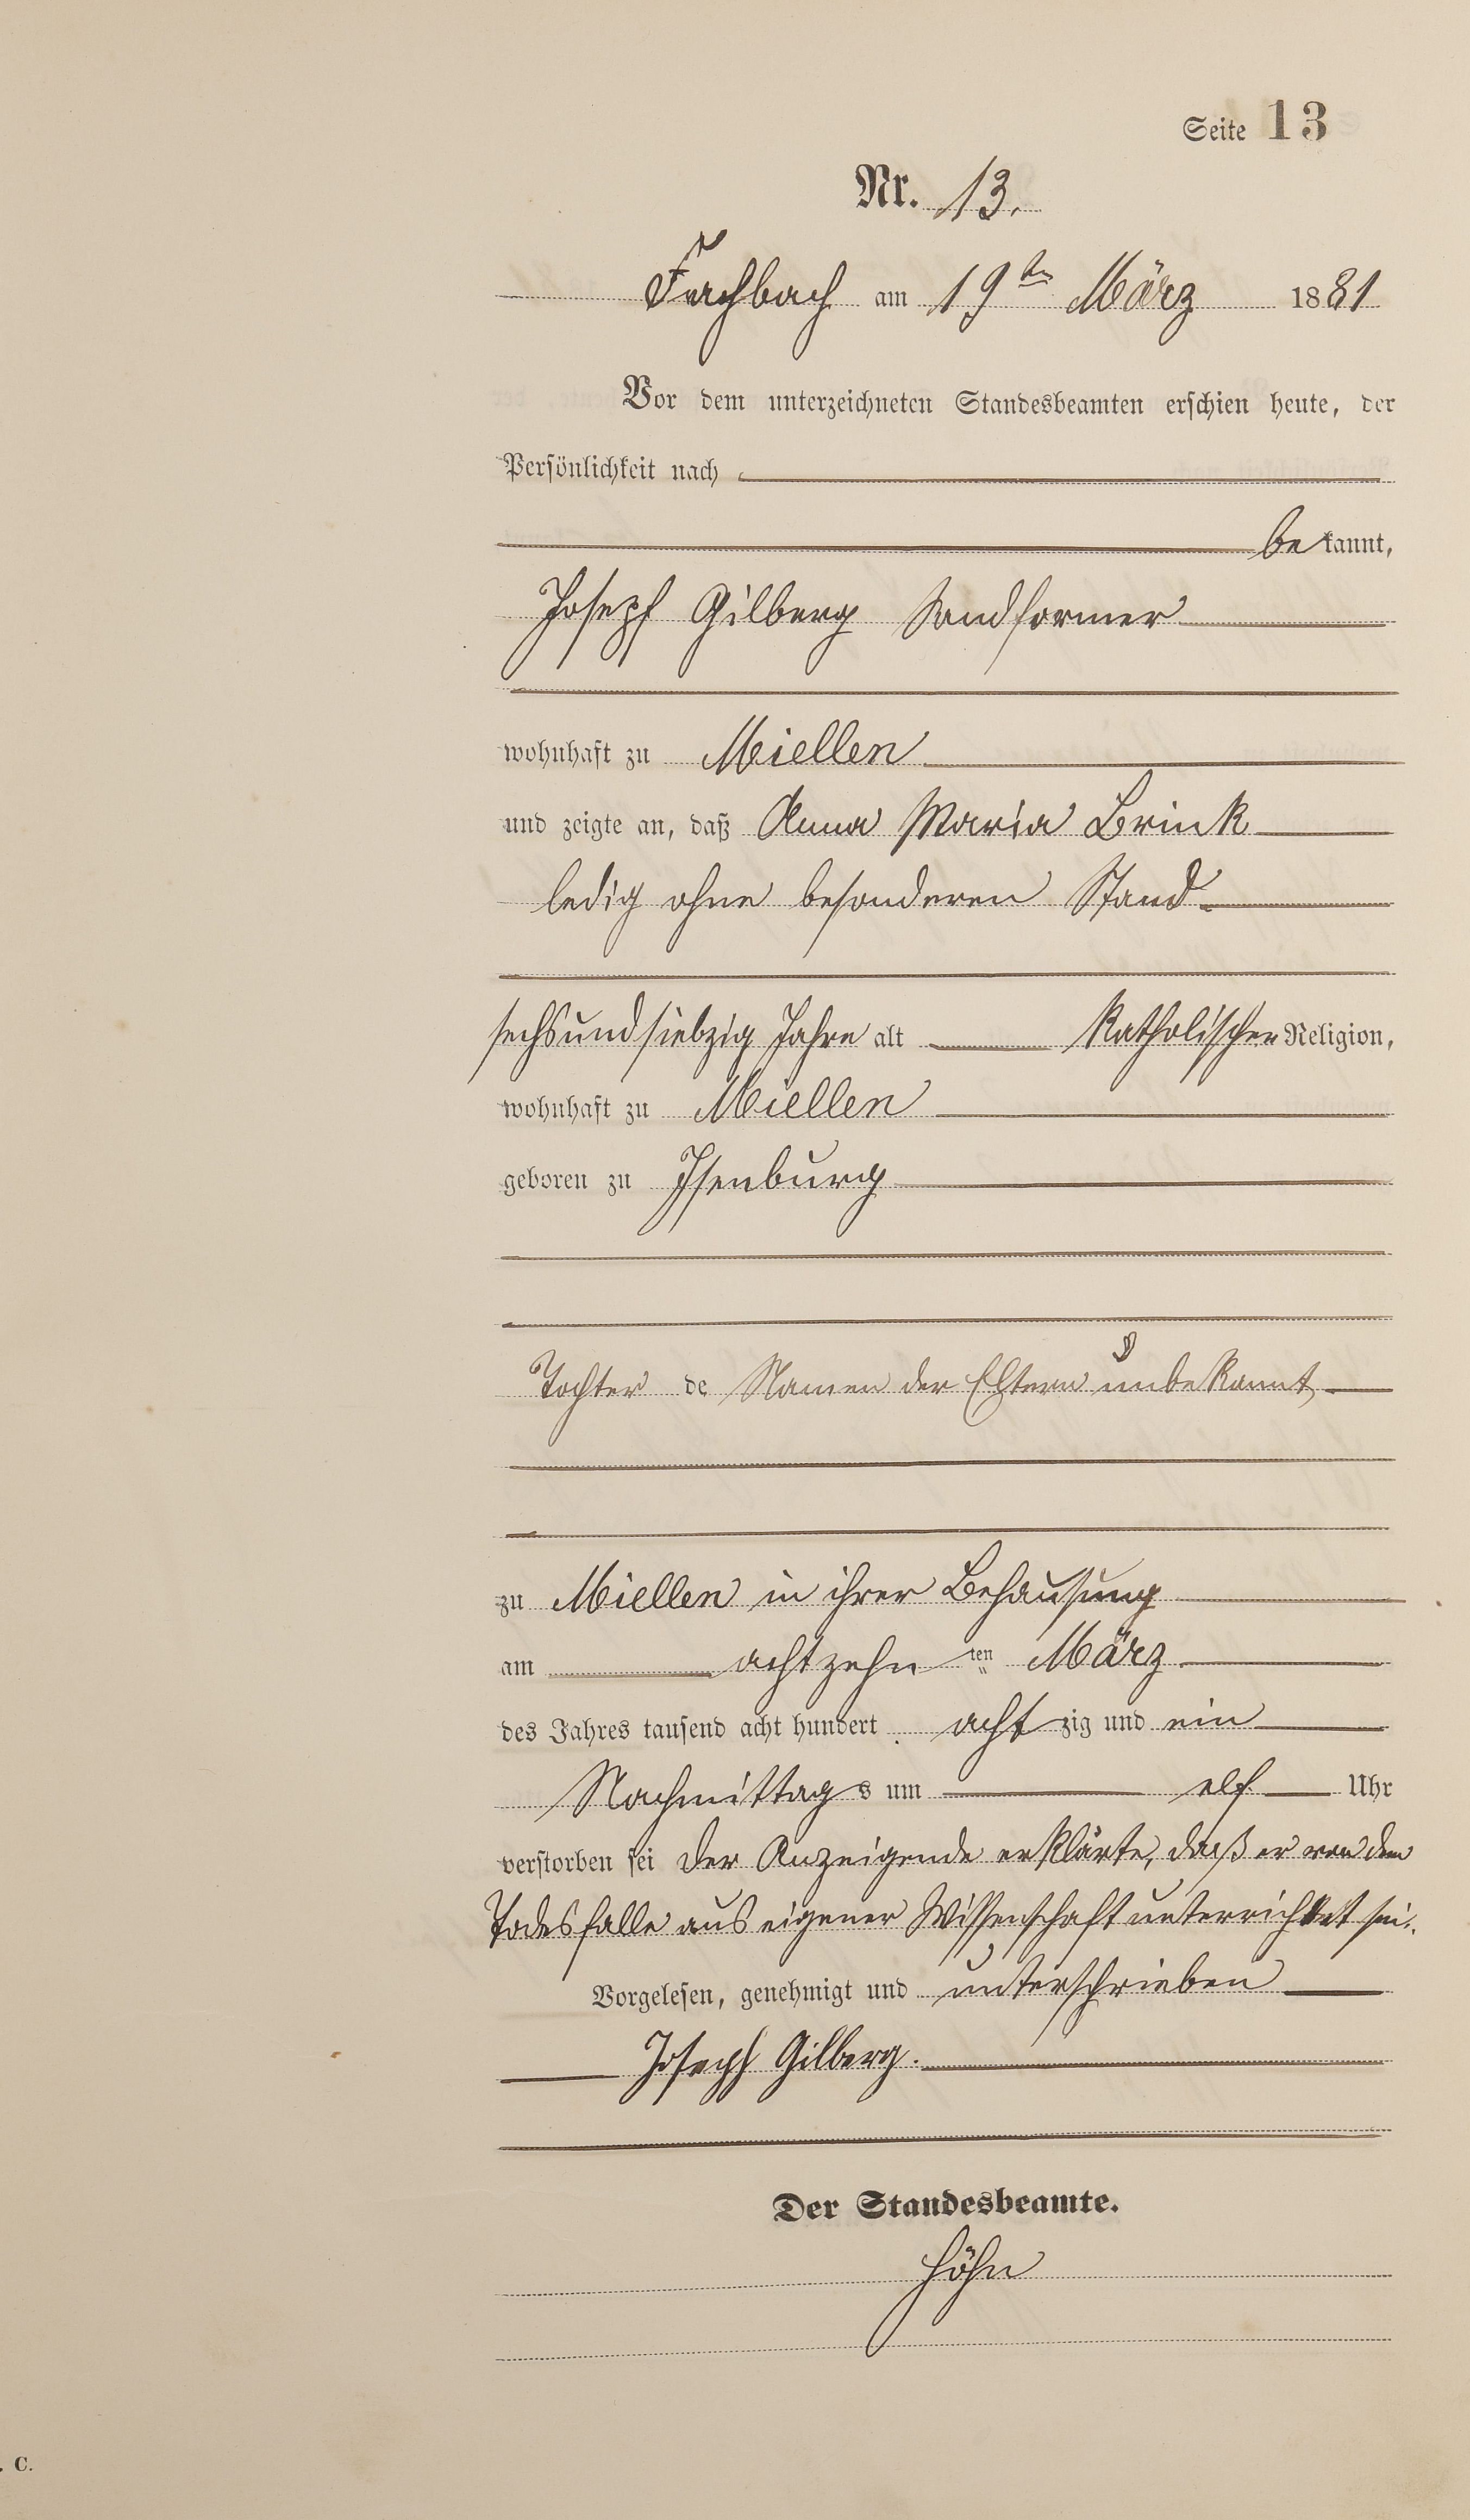 Seite 13
Nr. 13.
Fachbach am 19ten März 1881
Vor dem unterzeichneten Standesbeamten erschien heute, der
Persönlichkeit nach
be kannt,
Joseph Gilberg Sandformer
wohnhaft zu Miellen
und zeigte an, daß Anna Maria Brink
ledig ohne besonderen Stand
sechsundsiebzig Jahre alt katholischer Religion,
wohnhaft zu Miellen
geboren zu Isenburg
Tochter de Namen der Eltern unbekannt
zu Miellen in ihrer Behausung
am achtzehn ten März
des Jahres tausend acht hundert acht zig und ein
Nachmittag s um elf Uhr
verstorben sei der Anzeigende erklärte, daß er von dem
Todesfalle aus eigener Wissenschaft unterrichtet sei.
Vorgelesen, genehmigt und unterschrieben
Joseph Gilberg.
Der Standesbeamte.
Höhn
. C.